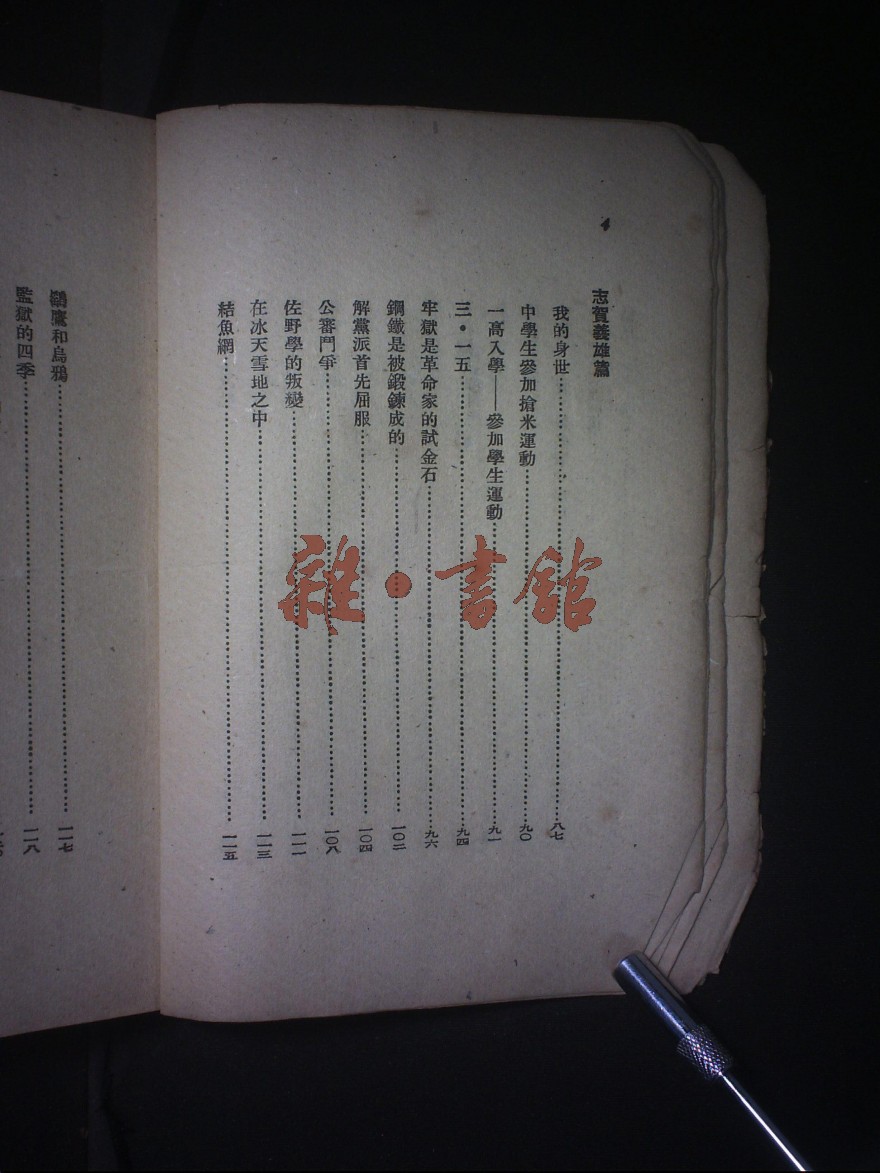 4
志賀義雄篇
我的身世……八七
中學生參加搶米運動……九〇
一高入學——參加學生運動……九一
三・一五……九四
牢獄是革命家的試金石……九六
鋼鐵是被鍛鍊成的……一〇二
解黨派首先屈服……一〇四
公審鬥爭……一〇八
佐野學的叛變……一一一
在冰天雪地之中……一一三
結魚網……一一五
鷂鷹和烏鴉……一一七
監獄的四季……一一八
雜・書館